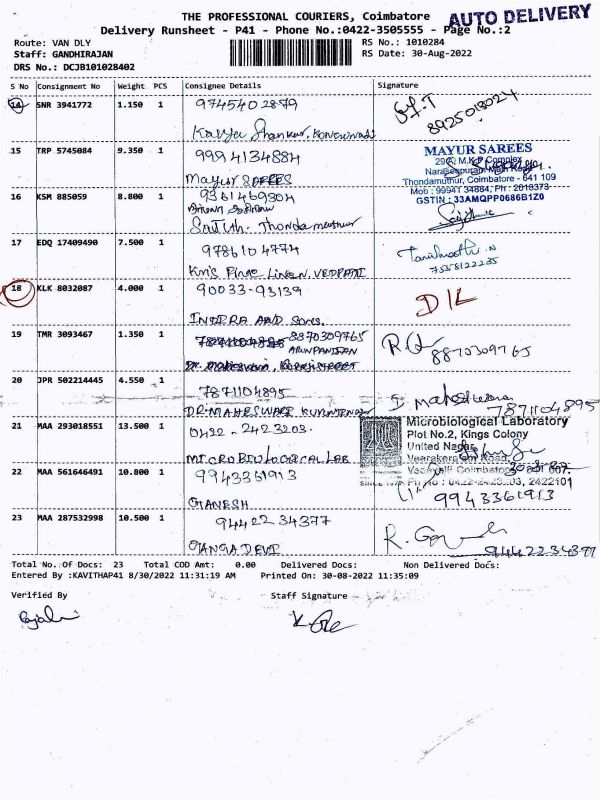 THE PROFESSIONAL COURIERS, Coimbatore
AUTO DELIVERY
Delivery Runsheet - P41 - Phone No.:0422-3505555 - Page No.:2
Route: VAN DLY
RS No.: 1010284
Staff: GANDHIRAJAN
RS Date: 30-Aug-2022
DRS No.: DCJB101028402
S No Consignment No Weight PCS Consignee Details Signature
14 SNR 3941772 1.150 1 9745402879
8925018024
Kavya Shankar,
15 TRP 5745084 9.350 1 9994134884
Mayur SAREES
MAYUR SAREES
290, M.K.P Complex
Naraseepuram Main Road
Thondamuthur, Coimbatore - 641 109
Mob : 99941 34884, Ph : 2018373
GSTIN : 33AMQPP0686B1Z0
16 KSM 885059 8.800 1 9361469304
Thondamuthur
17 EDQ 17409490 7.500 1 9786104774
7538122235
Kin's Pine Linen, VEDPATI
18 KLK 8032087 4.000 1 90033-93139
D/L
INDIRA AND SONS.
19 TMR 3093467 1.350 1 8870309765
8870309765
20 JPR 502214445 4.550 1 7871104895
I maheswari
7871104895
DR.MAHESWARI
21 MAA 293018551 13.500 1 0422-2423203.
MICROBIOLOGICAL LAB
Microbiological Laboratory
Plot No.2, Kings Colony
United Nagar
22 MAA 561646491 10.800 1 9943361913
2422101
9943361913
GANESH
23 MAA 287532998 10.500 1 9442234377
GANGA DEVI
R. Gov
9442234377
Total No. Of Docs: 23 Total COD Amt: 0.00 Delivered Docs: Non Delivered Docs:
Entered By :KAVITHAP41 8/30/2022 11:31:19 AM Printed On: 30-08-2022 11:35:09
Verified By Staff Signature